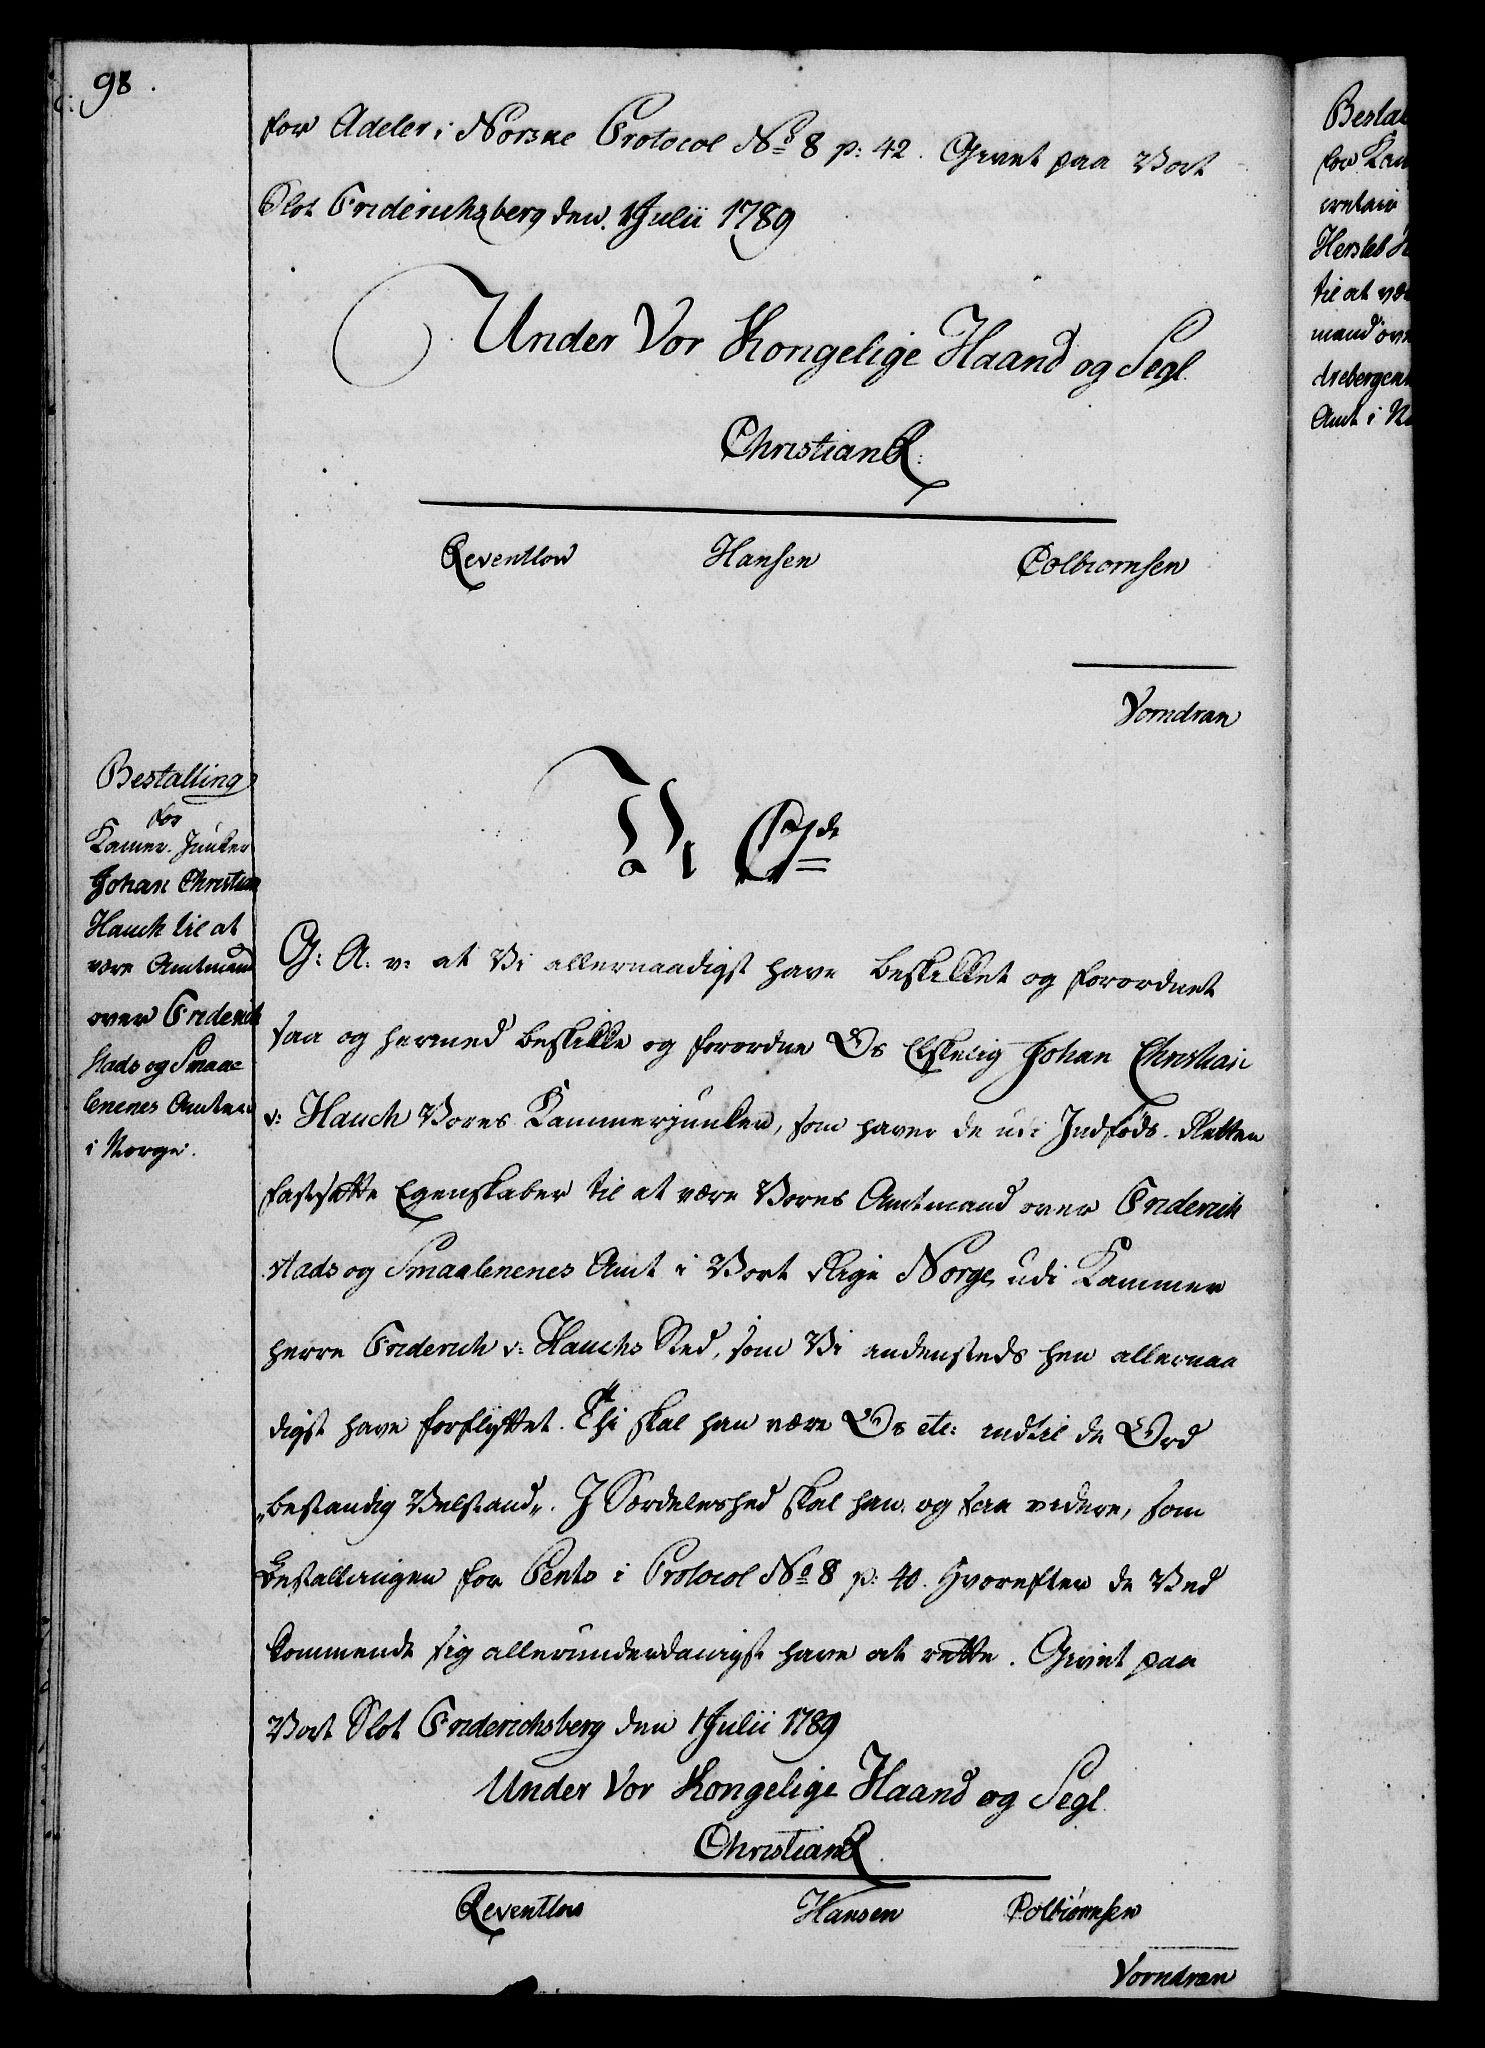 98.
for Adeler i Norske Protocol No 8 p: 42. Givet paa Vort
Slot Friderichsberg den 1 Julii 1789
Under Vor Kongelige Haand og Segl.
Christian R:
Reventlow Hansen Colbiørnsen
Vorndran
Bestalling
for
Kamer-Junker
Johan Christian
Hauch til at
være Amtmand
over Friderich
stads og Smaae
lenenes Amter
i Norge.
Vi C 7de
G: A: v: at Vi allernaadigst have beskikket og forordnet
saa og hermed beskikke og forordne Os Elskelig Johan Christian
v: Hauch Vores Kammerjunker, som haver de udi Indføds-Retten
fastsatte Egenskaber til at være Vores Amtmand over Friderich
stads og Smaalenenes Amt i Vort Rige Norge, udi Kammer
herre Friderich v: Hauchs Sted, som Vi andensteds hen allernaa
digst have forflyttet. Thi skal han være Os etc: indtil de Ord
"bestandig Velstand". I Særdeleshed skal han og saa videre, som
Bestallingen for Pento i Protocol No 8 p: 40. Hvorefter de Ved
kommende sig allerunderdanigst have at rette. Givet paa
Vort Slot Friderichsberg den 1 Julii 1789
Under Vor Kongelige Haand og Segl.
Christian R.
Reventlow Hansen Colbiørnsen
Vorndran
for
Hersleb
til at
Amt i